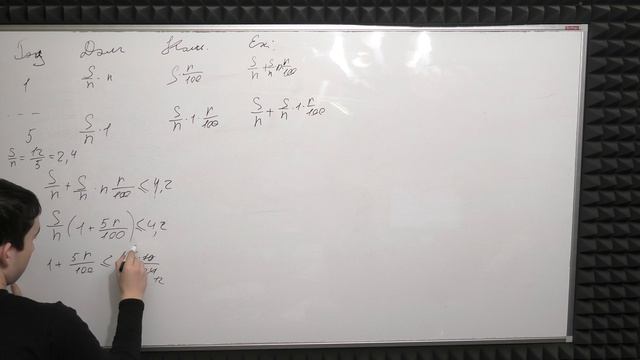 Год Долг Нач. Еж:
1 S/n · n S · r/100 S/n + S/n · n r/100
---
5 S/n · 1 S/n · 1 · r/100 S/n + S/n · 1 · r/100
S/n = 12/5 = 2,4
S/n + S/n · n r/100 ≤ 4,2
S/n (1 + 5r/100) ≤ 4,2
1 + 5r/100 ≤